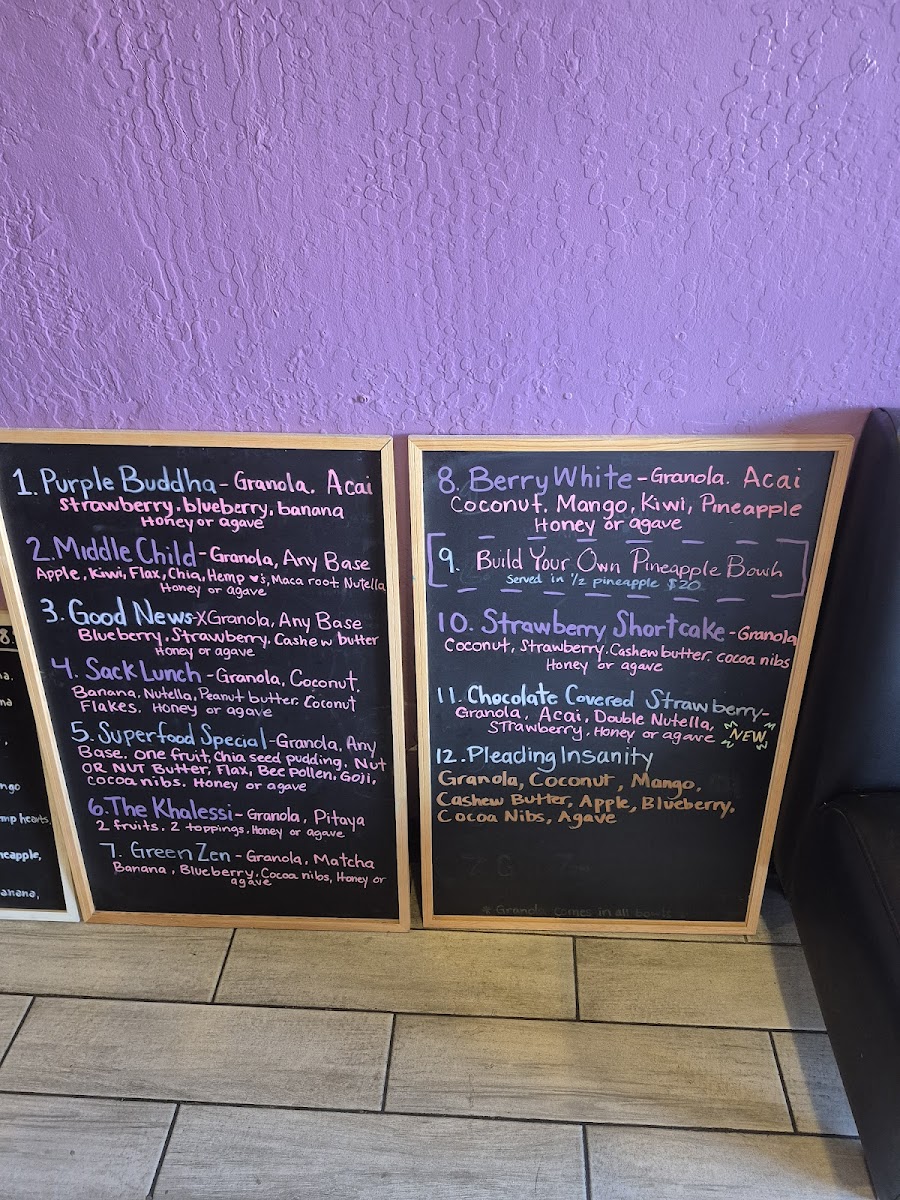 8.
na.
na
,
ngo
mp hearts,
neapple,
anana,
1. Purple Buddha - Granola. Acai
Strawberry. blueberry, banana
Honey or agave
2. Middle Child - Granola, Any Base
Apple, Kiwi, Flax, Chia, Hemp ♥'s, Maca root Nutella
Honey or agave
3. Good News - XGranola, Any Base
Blueberry, Strawberry, Cashew butter
Honey or agave
4. Sack Lunch - Granola, Coconut,
Banana, Nutella, Peanut butter, Coconut
Flakes. Honey or agave
5. Superfood Special - Granola, Any
Base. one fruit, chia seed pudding. Nut
OR NUT Butter, Flax, Bee Pollen, Goji,
cocoa nibs. Honey or agave
6. The Khalessi - Granola, Pitaya
2 fruits. 2 toppings, Honey or agave
7. Green Zen - Granola, Matcha
Banana, Blueberry, Cocoa nibs, Honey or
agave
8. Berry White - Granola. Acai
Coconut, Mango, Kiwi, Pineapple
Honey or agave
9. Build Your Own Pineapple Bowh
served in 1/2 pineapple $20
10. Strawberry Shortcake - Granola
Coconut, Strawberry. Cashew butter. cocoa nibs
Honey or agave
11. Chocolate Covered Strawberry -
Granola, Acai, Double Nutella,
Strawberry, Honey or agave
NEW
12. Pleading Insanity
Granola, Coconut, Mango,
Cashew Butter, Apple, Blueberry,
Cocoa Nibs, Agave
* Granola comes in all bowls